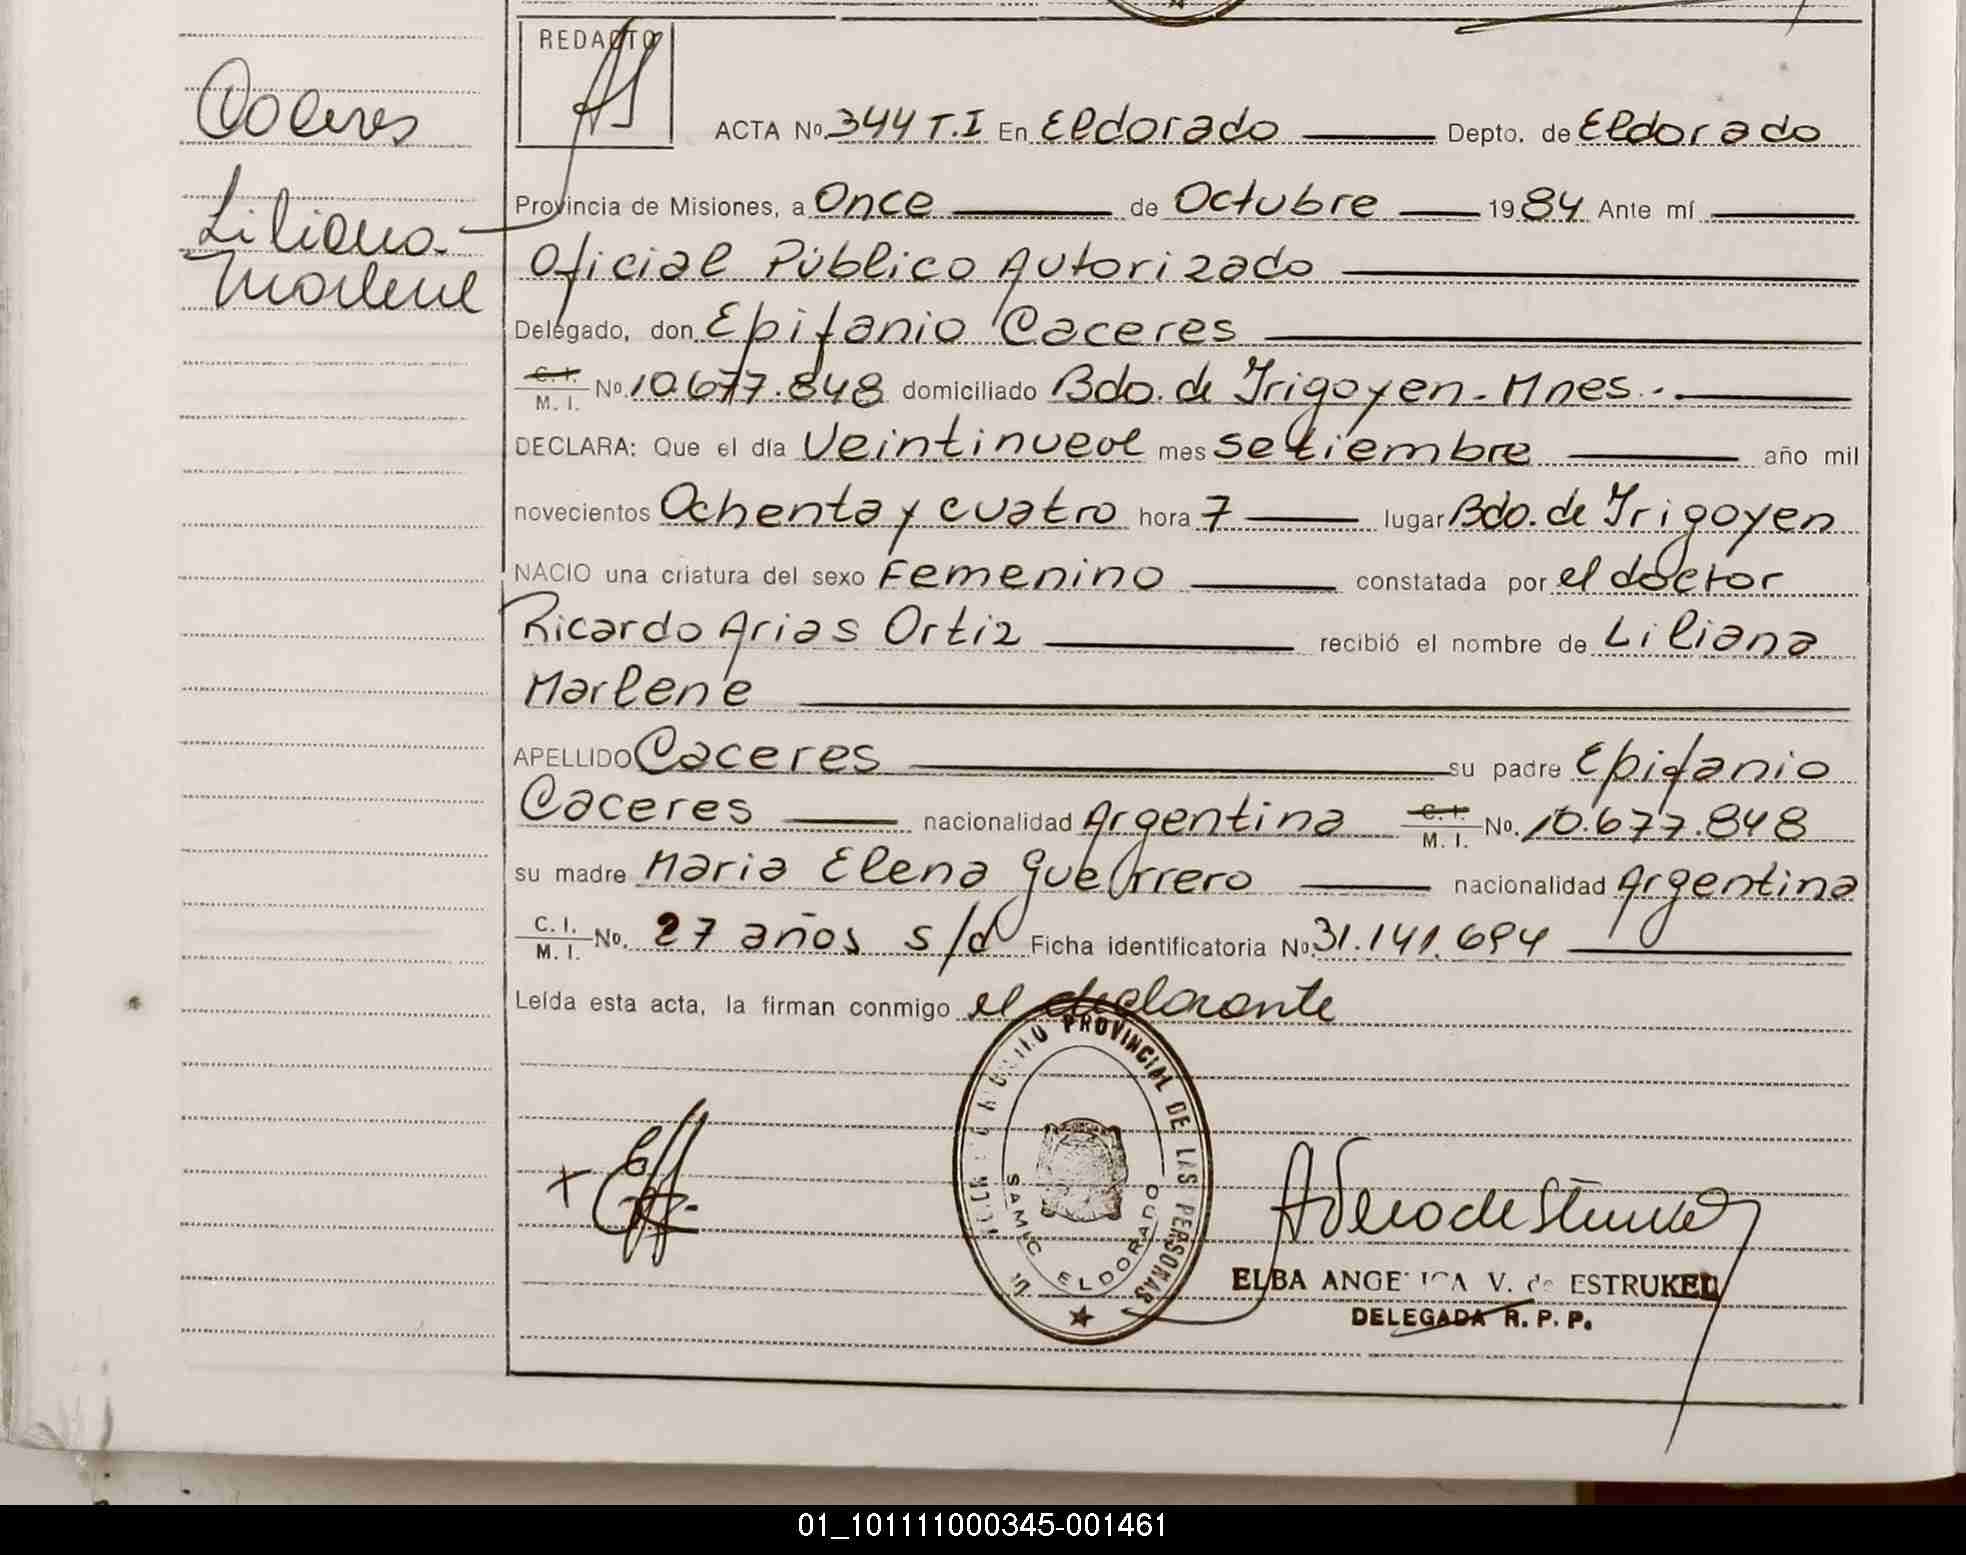 Caceres
Liliana
Marlene
REDACTO
ACTA Nº 344 T.I En Eldorado Depto. de Eldorado
Provincia de Misiones, a Once de Octubre 1984 Ante mí
Oficial Público Autorizado
Delegado, don Epifanio Caceres
C. I. / M. I. Nº 10.677.848 domiciliado Bdo. de Irigoyen - Mnes.-
DECLARA: Que el día Veintinueve mes setiembre año mil
novecientos Ochenta y cuatro hora 7 lugar Bdo. de Irigoyen
NACIO una criatura del sexo Femenino constatada por el doctor
Ricardo Arias Ortiz recibió el nombre de Liliana
Marlene
APELLIDO Caceres su padre Epifanio
Caceres nacionalidad Argentina C. I. / M. I. No. 10.677.848
su madre Maria Elena Guerrero nacionalidad Argentina
C. I. / M. I. No. 27 años s/d Ficha identificatoria Nº 31.141.694
Leída esta acta, la firman conmigo el declarante
PROVINCIAL DE LAS PERSONAS
SAMIC ELDORADO
ELBA ANGELICA V. de ESTRUKEL
DELEGADA R. P. P.
01_101111000345-001461